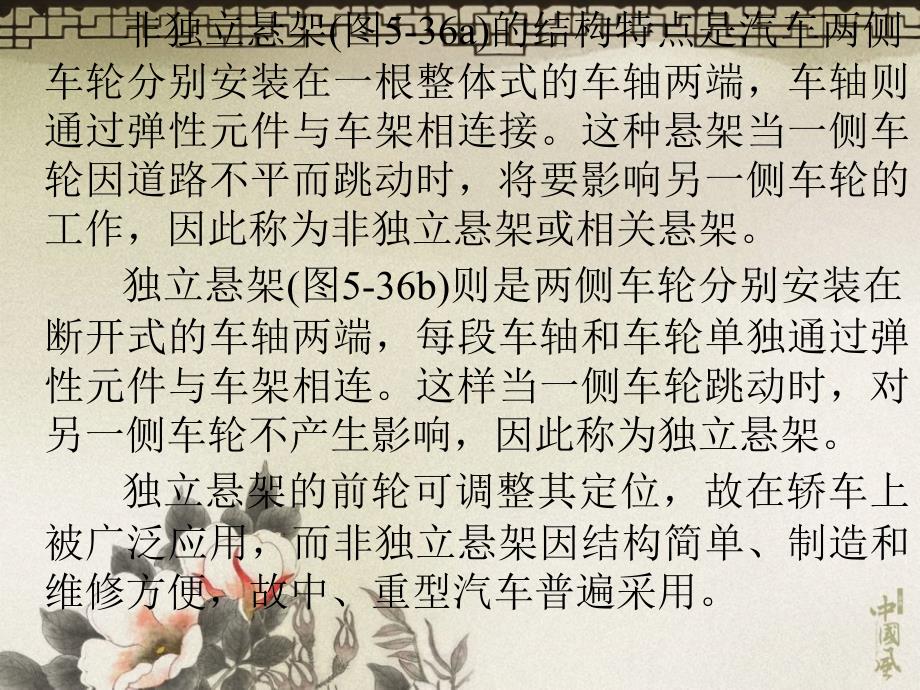 非独立悬架(图5-36a)的结构特点是汽车两侧
车轮分别安装在一根整体式的车轴两端，车轴则
通过弹性元件与车架相连接。这种悬架当一侧车
轮因道路不平而跳动时，将要影响另一侧车轮的
工作，因此称为非独立悬架或相关悬架。
独立悬架(图5-36b)则是两侧车轮分别安装在
断开式的车轴两端，每段车轴和车轮单独通过弹
性元件与车架相连。这样当一侧车轮跳动时，对
另一侧车轮不产生影响，因此称为独立悬架。
独立悬架的前轮可调整其定位，故在轿车上
被广泛应用，而非独立悬架因结构简单、制造和
维修方便，故中、重型汽车普遍采用。
中國風